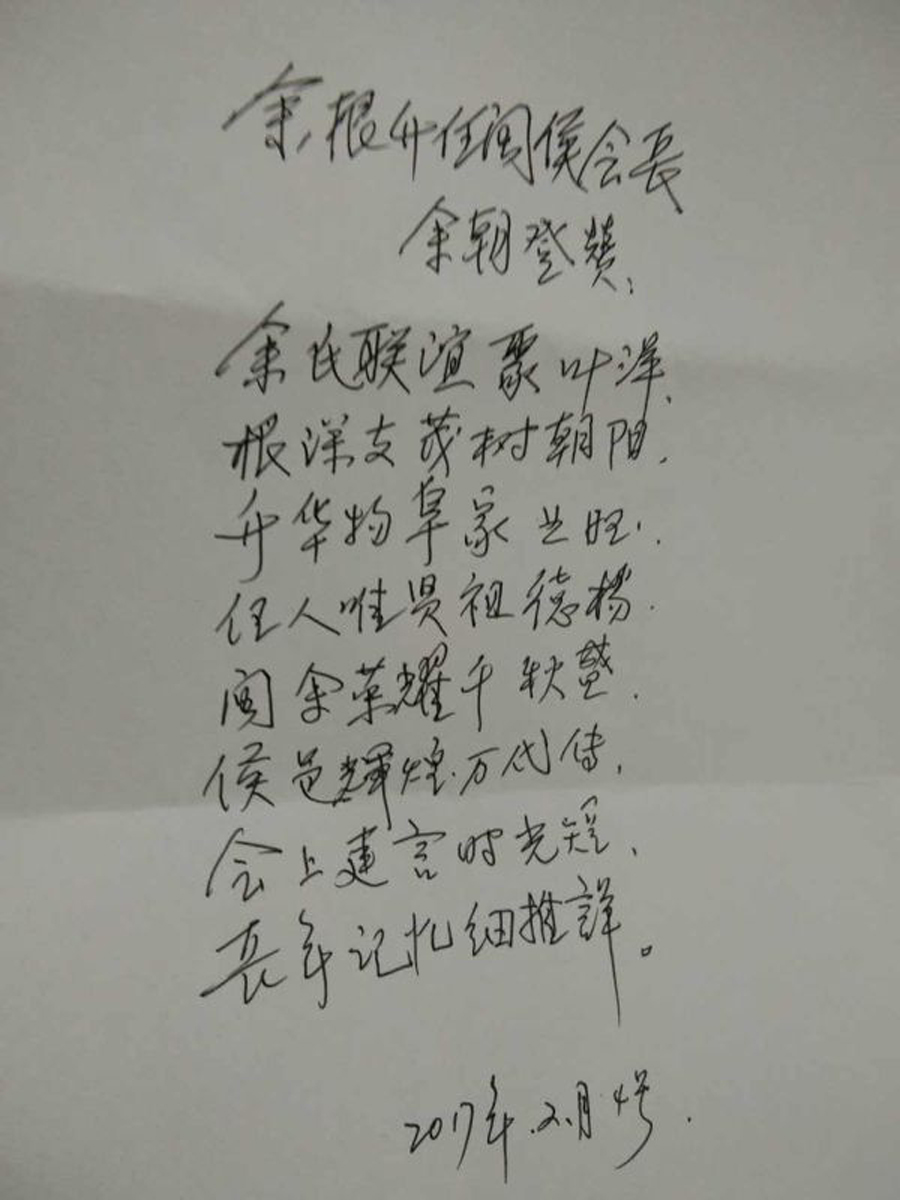 余根升任闽侯会长
余朝登赞:
余氏联谊聚叶洋,
根深支茂树朝阳,
升华物阜家业旺,
任人唯贤祖德杨.
闽余荣耀千秋盛.
侯邑輝煌万代传,
会上建言时光短,
長年记忆细推詳。
2017年.2.月4号.